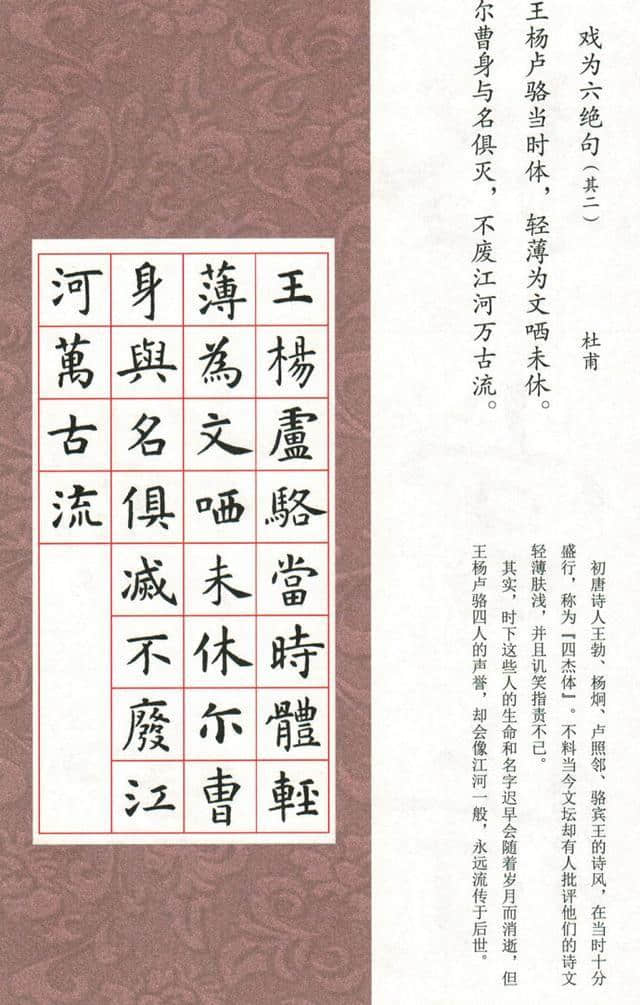 戏为六绝句(其二)
杜甫
王杨卢骆当时体，轻薄为文哂未休。
尔曹身与名俱灭，不废江河万古流。
初唐诗人王勃、杨炯、卢照邻、骆宾王的诗风，在当时十分
盛行，称为『四杰体』。不料当今文坛却有人批评他们的诗文
轻薄肤浅，并且讥笑指责不已。
其实，时下这些人的生命和名字迟早会随着岁月而消逝，但
王杨卢骆四人的声誉，却会像江河一般，永远流传于后世。
王楊盧駱當時體輕
薄為文哂未休尒曹
身與名俱滅不廢江
河萬古流